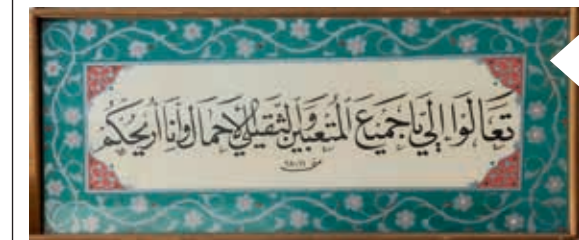 تَعَالَوْا إِلَيَّ يَا جَمِيعَ الْمُتْعَبِينَ وَالثَّقِيلِي الْأَحْمَالِ وَأَنَا أُرِيحُكُمْ
متى ٢٨:١١